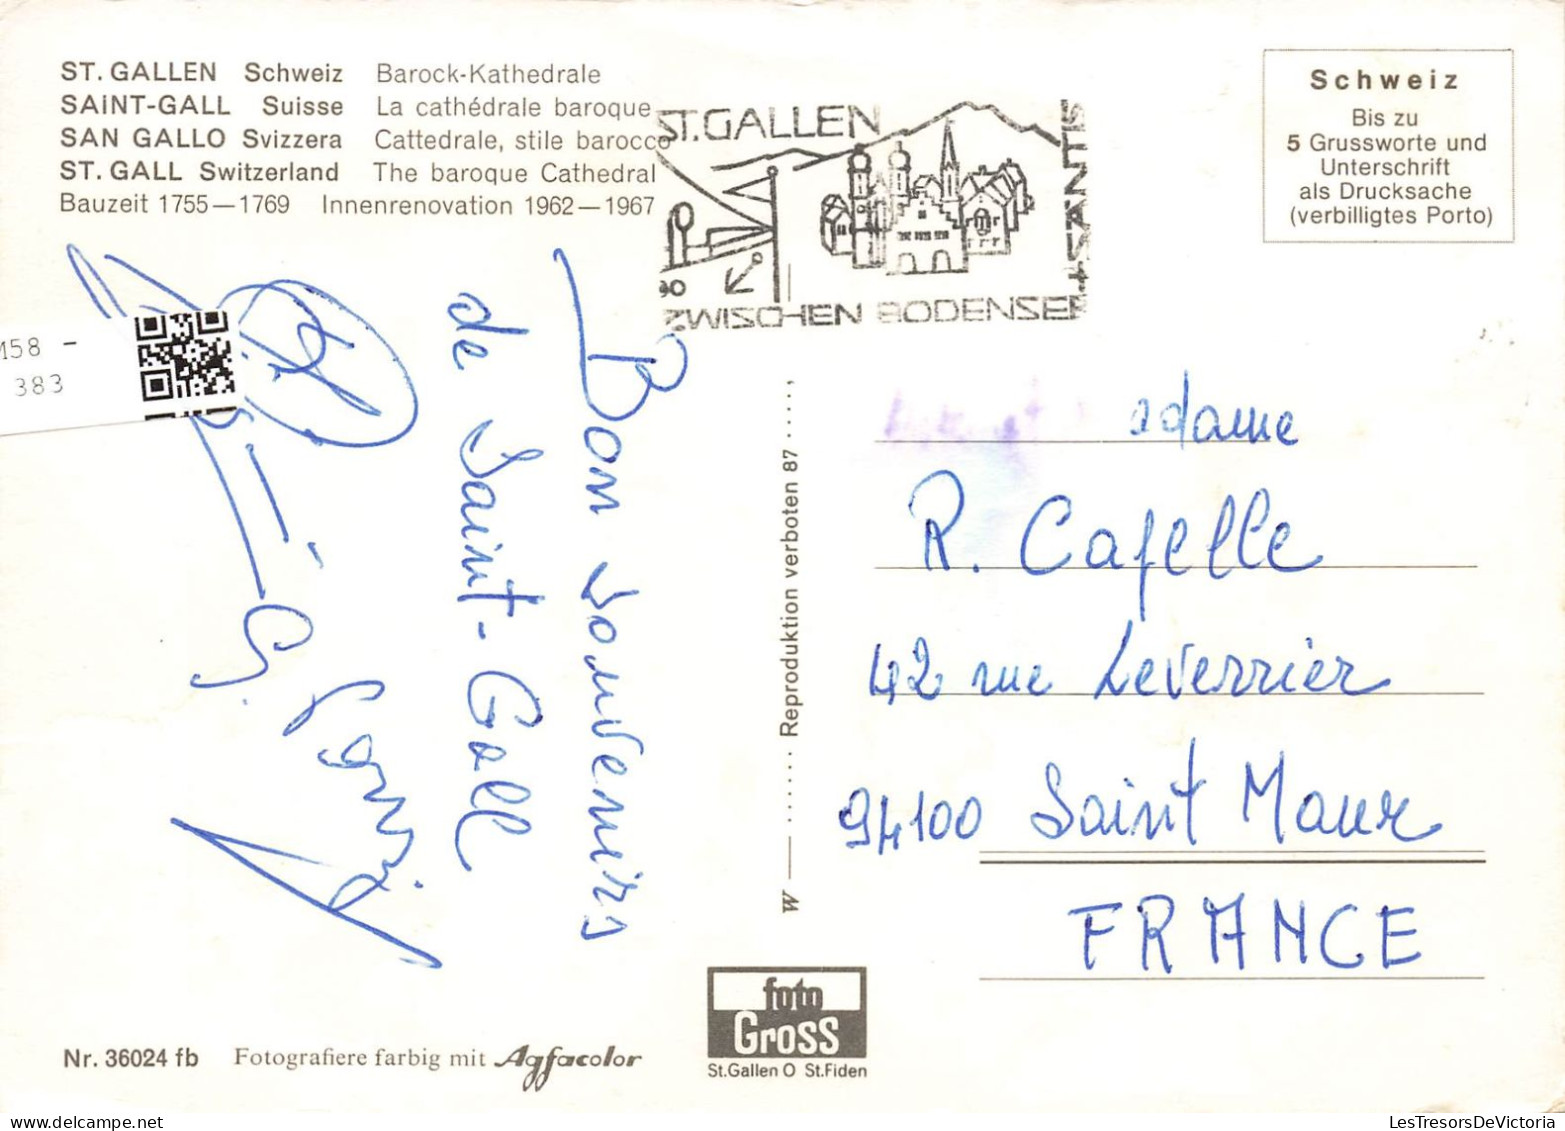 ST. GALLEN Schweiz Barock-Kathedrale
SAINT-GALL Suisse La cathédrale baroque
SAN GALLO Svizzera Cattedrale, stile barocco
ST. GALL Switzerland The baroque Cathedral
Bauzeit 1755—1769 Innenrenovation 1962—1967
ST. GALLEN
ZWISCHEN BODENSEE
+SÄNTIS
Schweiz
Bis zu
5 Grussworte und
Unterschrift
als Drucksache
(verbilligtes Porto)
158 -
383
Bon souvenirs
de Saint-Gall
W — ...... Reproduktion verboten 87 .....,
adame
R. Capelle
42 rue Leverrier
94100 Saint Maur
FRANCE
foto
Gross
St.Gallen O St.Fiden
Nr. 36024 fb Fotografiere farbig mit Agfacolor
LesTresorsDeVictoria